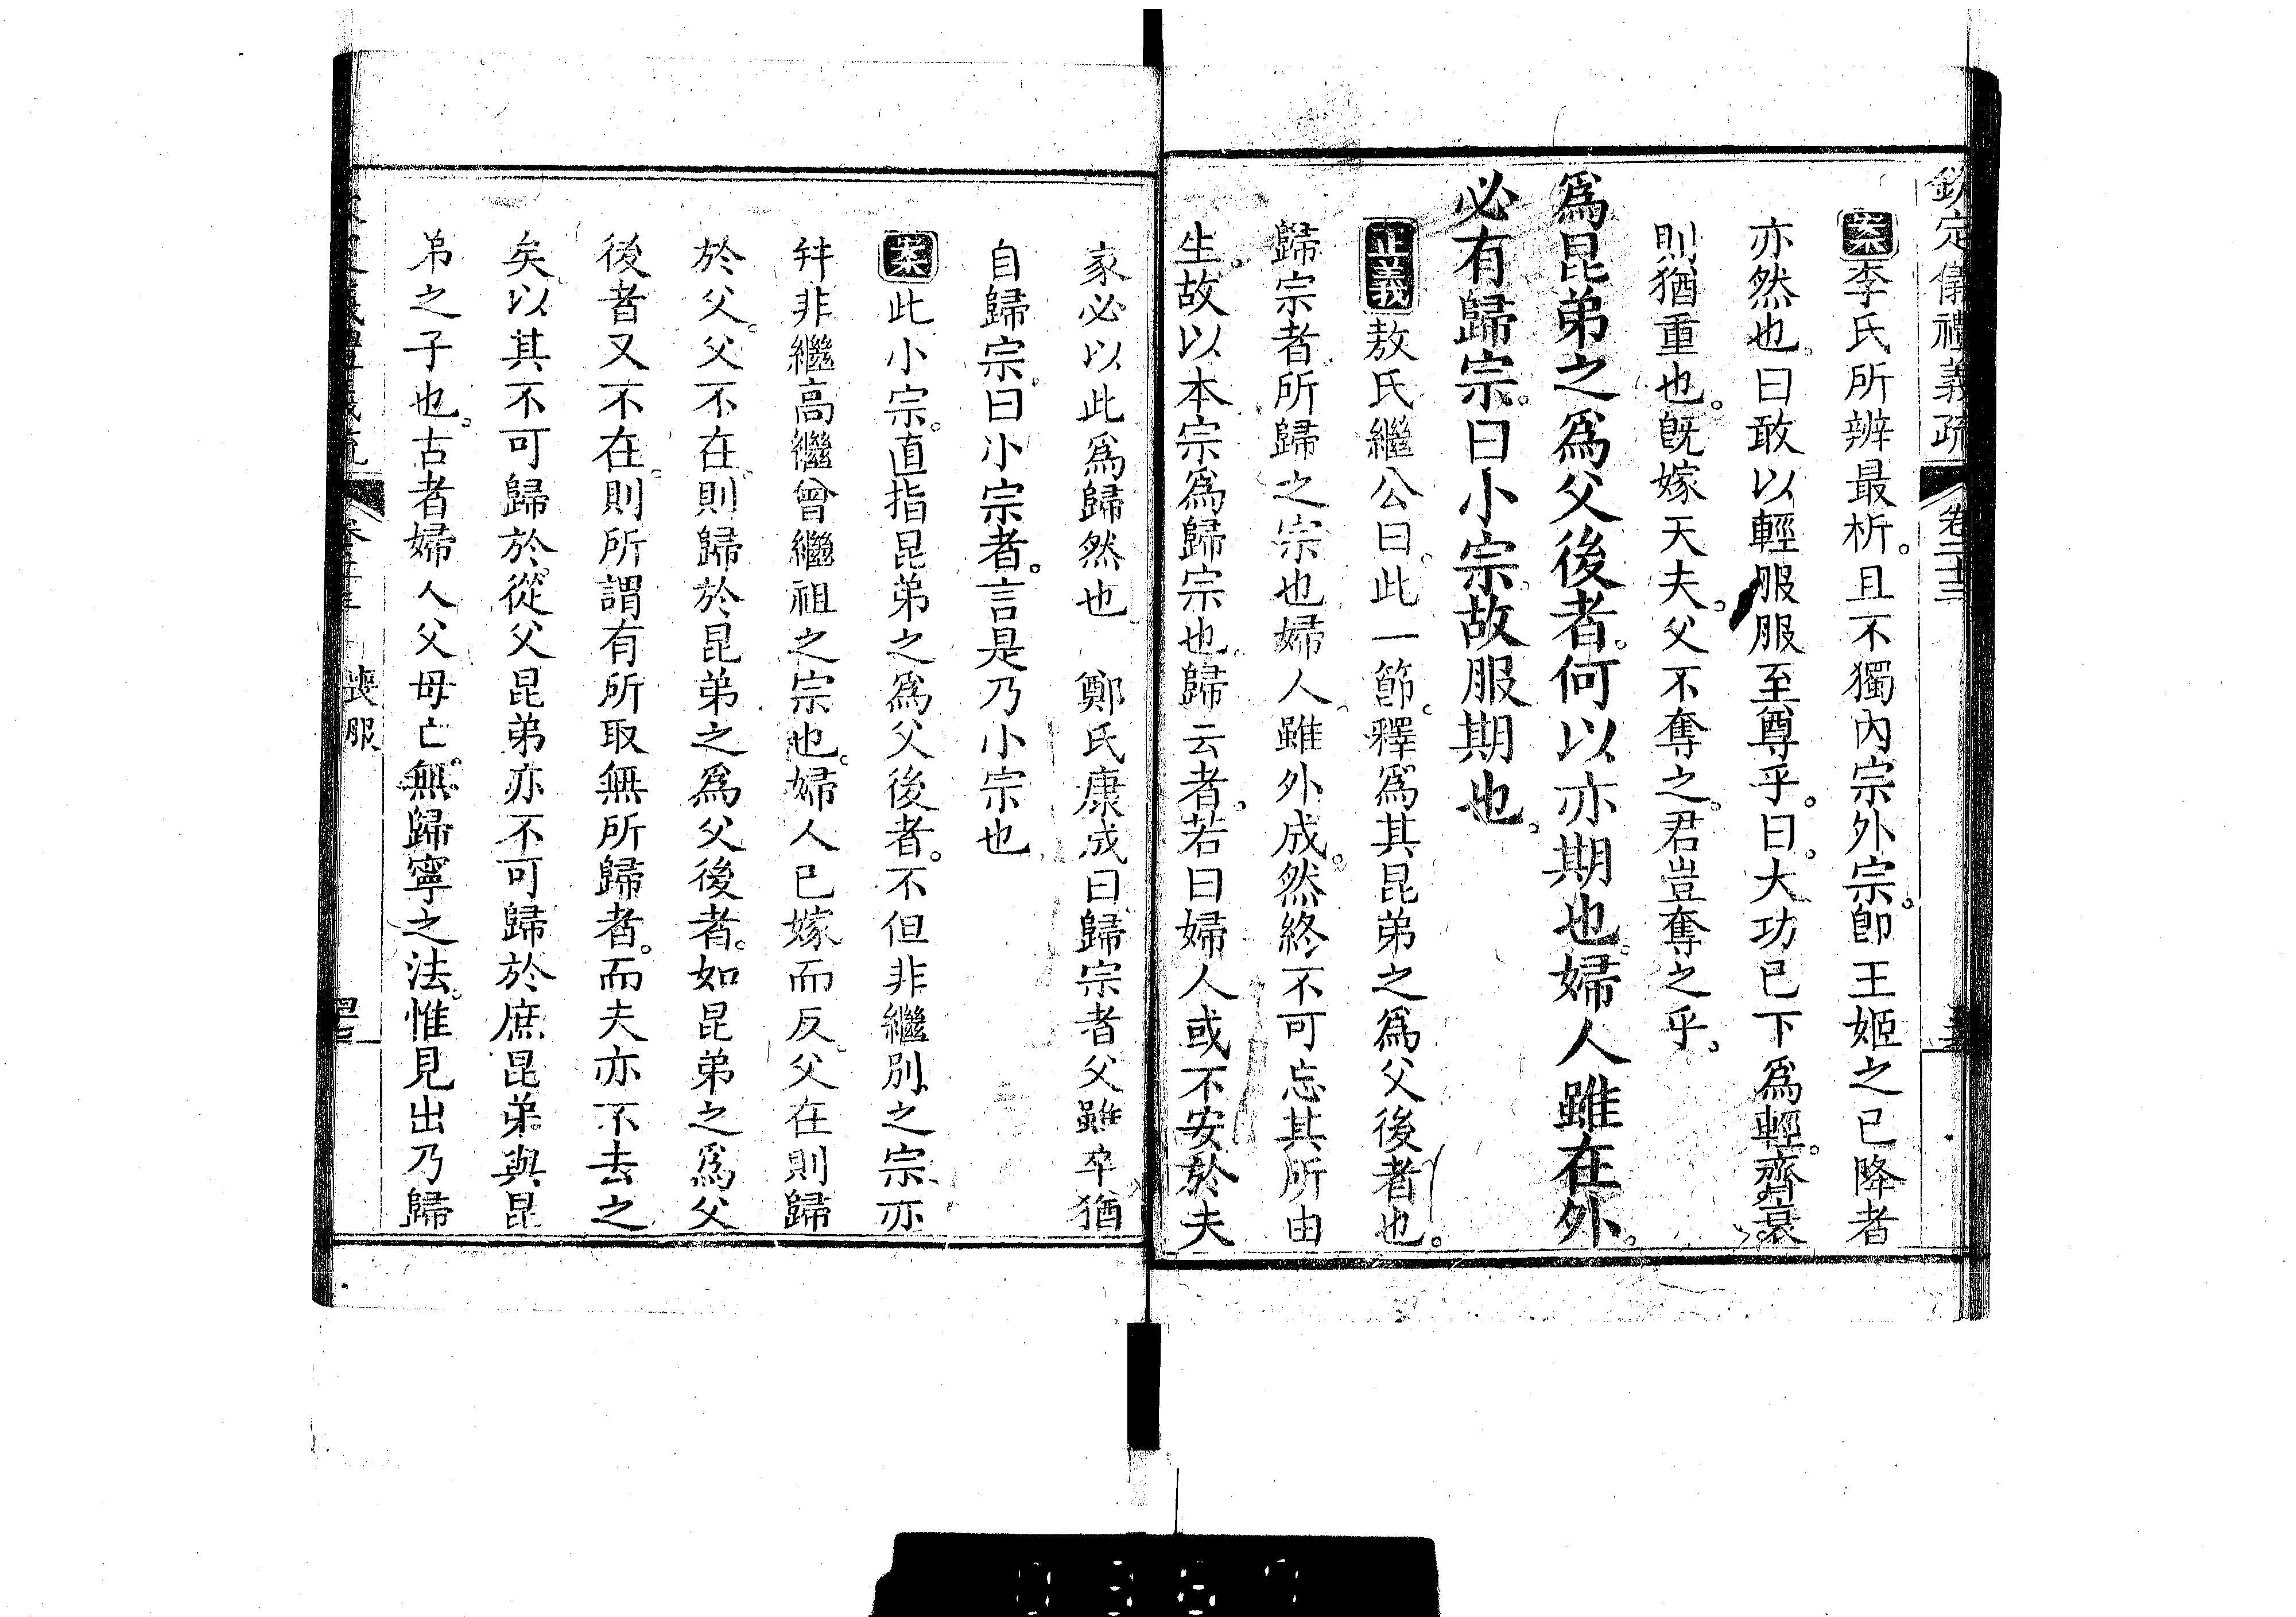 欽定儀禮義疏 卷二十三
案李氏所辨最析。且不獨內宗外宗。卽王姬之已降者
亦然也。曰敢以輕服服至尊乎。曰。大功已下爲輕。齊衰
則猶重也。旣嫁天夫。父不奪之。君豈奪之乎。
爲昆弟之爲父後者。何以亦期也。婦人雖在外。
必有歸宗。曰小宗。故服期也。
正義敖氏繼公曰。此一節。釋爲其昆弟之爲父後者也。
歸宗者。所歸之宗也。婦人。雖外成。然終不可忘其所由
生。故以本宗爲歸宗也。歸云者。若曰婦人或不安於夫
家必以此爲歸然也 鄭氏康成曰歸宗者父雖卒猶
自歸宗。曰小宗者。言是乃小宗也
案此小宗。直指昆弟之爲父後者。不但非繼別之宗。亦
幷非繼高繼曾繼祖之宗也。婦人已嫁而反。父在則歸
於父。父不在。則歸於昆弟之爲父後者。如昆弟之爲父
後者又不在。則所謂有所取無所歸者。而夫亦不去之
矣。以其不可歸於從父昆弟亦不可歸於庶昆弟與昆
弟之子也。古者婦人父母亡。無歸寧之法。惟見出乃歸
喪服